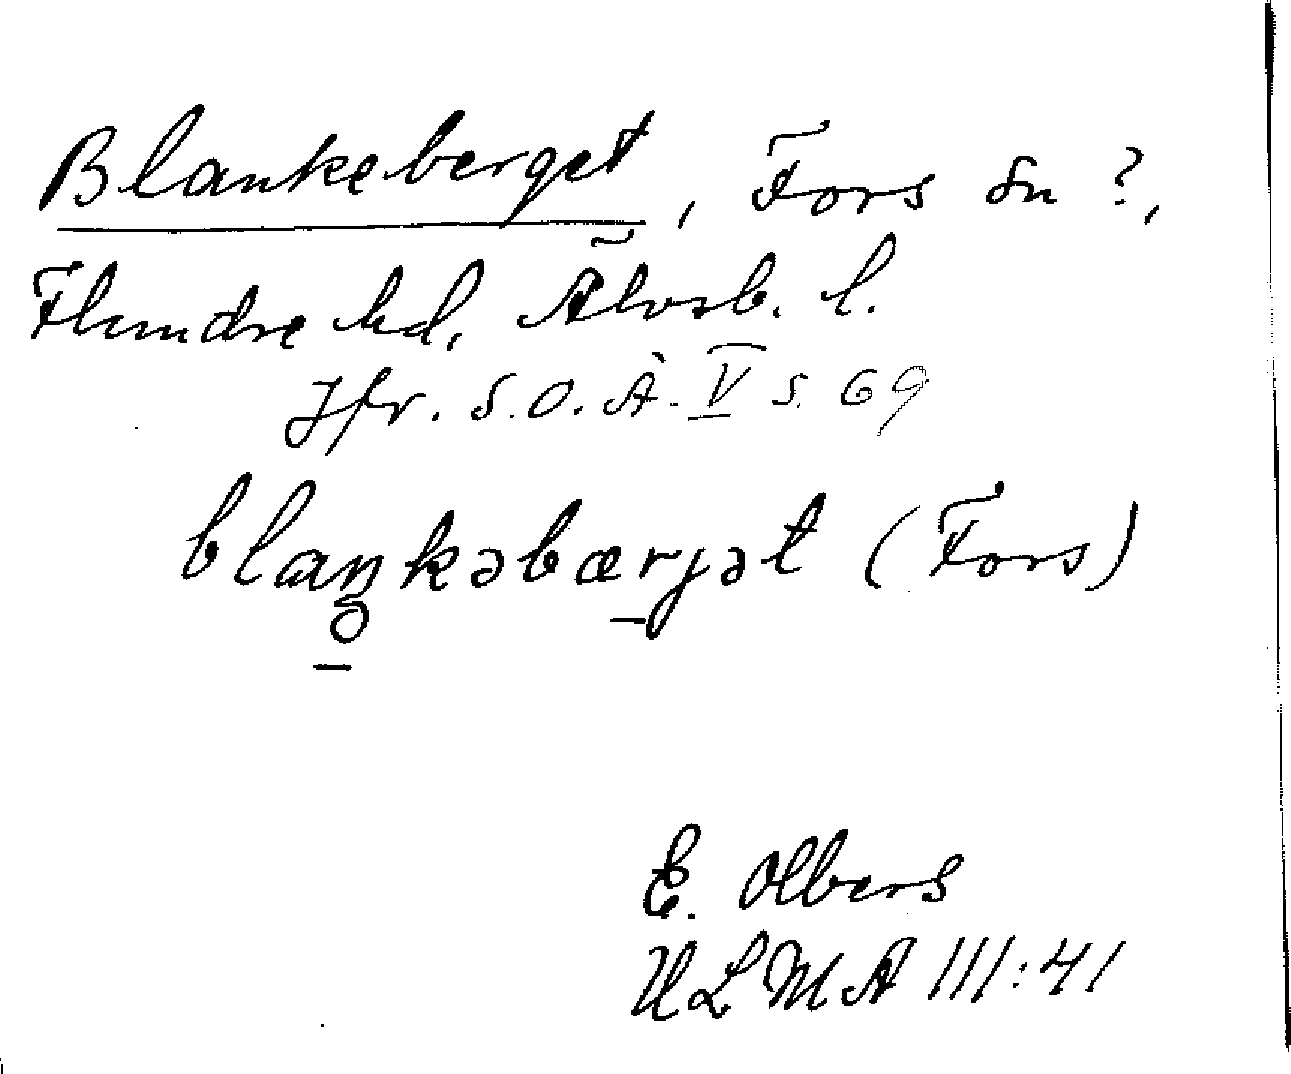 Blankeberget, Fors sn ?,
Flundre hd, Älvsb. l.
Jfr. S.O.Ä. V s. 69
blaŋkəbærjət (Fors)
E. Olbers
ULMA 111:41